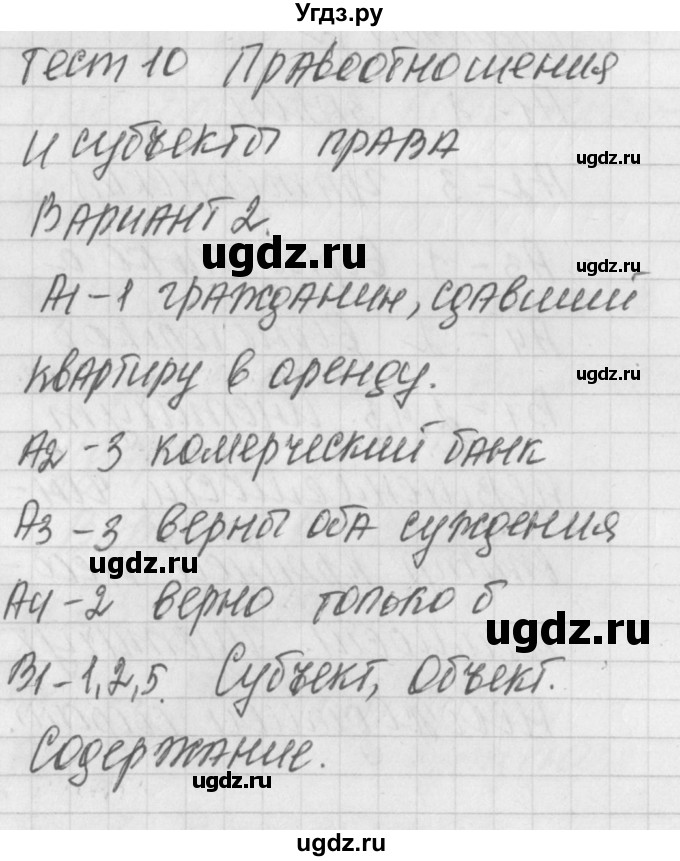 Угдз.ру
Тест 10 Правоотношения
и субъекты права
ugdz.ru
Вариант 2.
ugdz.ru
ugdz.ru
А1-1 гражданин, сдавший
квартиру в аренду.
ugdz.ru
А2-3 комерческий банк
А3-3 верны оба суждения
ugdz.ru
А4-2 верно только б
ugdz.ru
В1-1,2,5. Субъект, Объект.
ugdz.ru
Содержание.
ugdz.ru
ugdz.ru